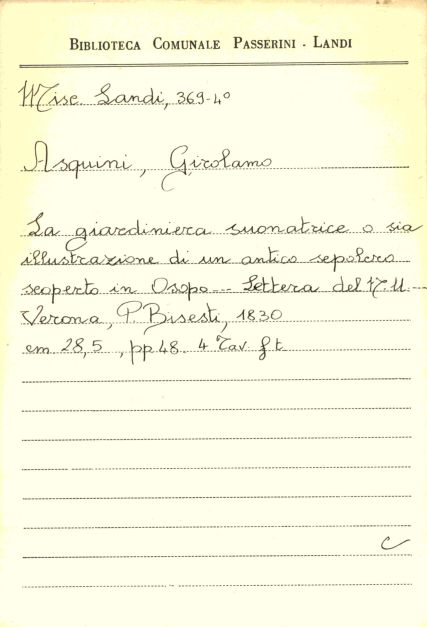 BIBLIOTECA COMUNALE PASSERINI - LANDI
Misc. Landi, 369-4°
Asquini, Girolamo
La giardiniera suonatrice o sia
illustrazione di un antico sepolcro
scoperto in Osopo... Lettera del N.U...
Verona, P. Bisesti, 1830
cm 28,5, pp 48. 4 Tav. f t
C